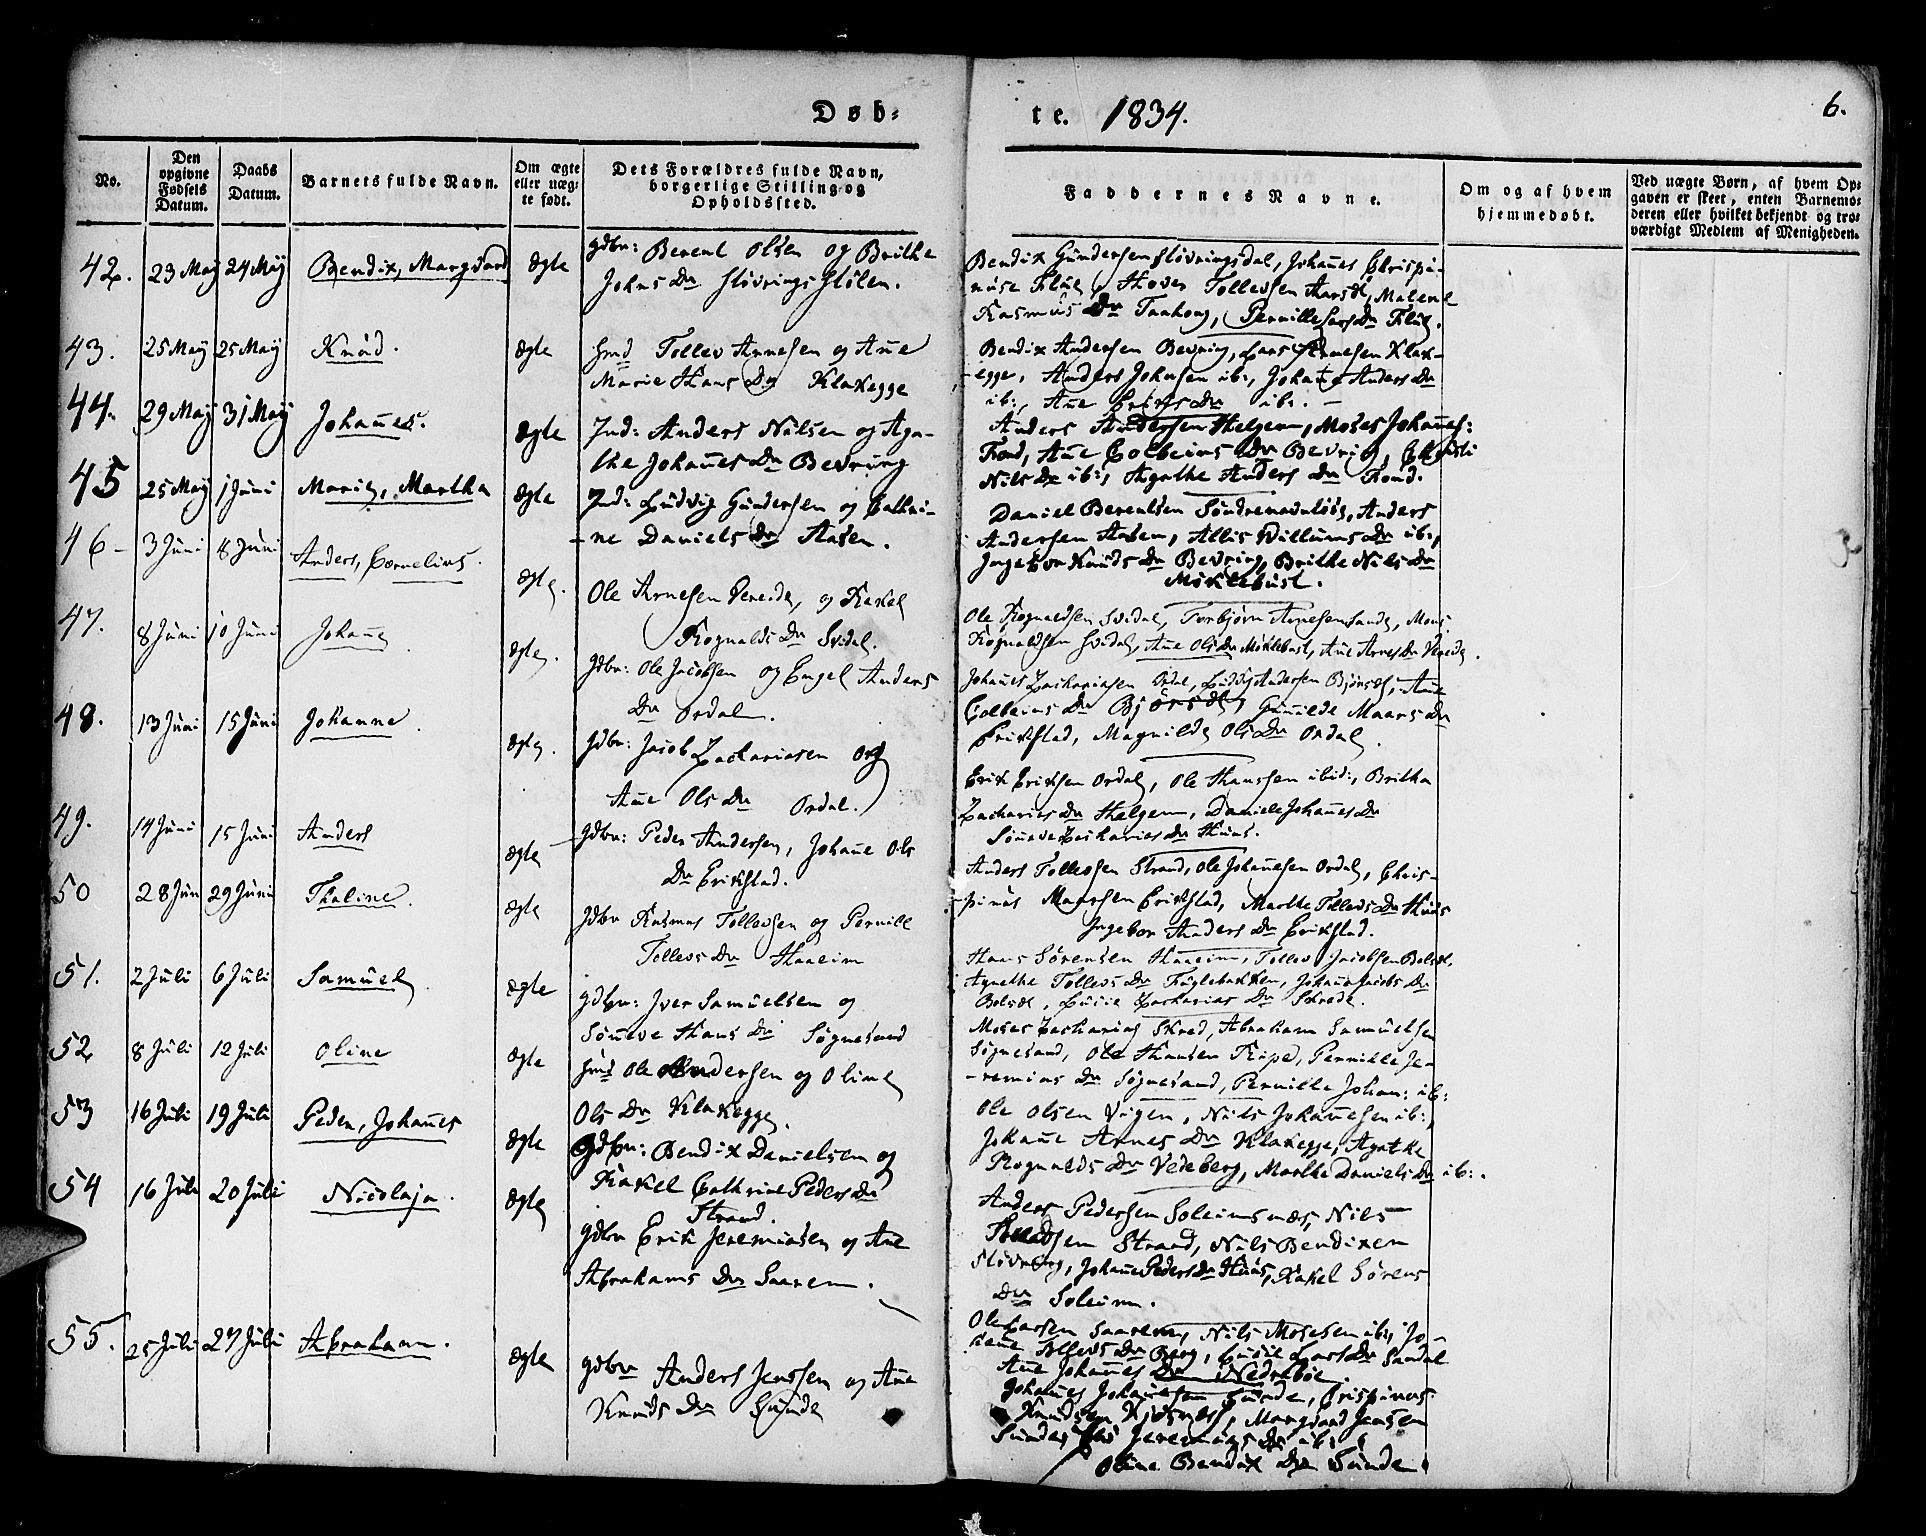 Døb-
te. 1834.
6.
No.
Den opgivne Fødsels Datum.
Daabs Datum.
Barnets fulde Navn.
Om ægte eller uæg-
te født.
Dets Forældres fulde Navn,
borgerlige Stilling og
Opholdssted.
Faddernes Navne.
Om og af hvem
hjemmedøbt.
Ved uægte Børn, af hvem Op-
gaven er skeet, enten Barnemo-
deren eller hvilket bekjendt og tro-
værdigt Medlem af Menigheden.
42. 23 Maÿ 24 Maÿ Bendix, Margvard ægte
Gdbr: Berent Olsen og Brithe
Johns Dr Støvringsstølen.
Bendix Gundersen Støvringsdal, Johañes Chrispi-
Tollevsen Aarsd, Malene
Rasmus Dr Taahong, Pernille Lars Dr
43. 25 Maÿ 25 Maÿ Knud. ægte
Hmd Tollev Arnesen og Añe
Marie Hans Dr Klakegge
Bendix Andersen Bevring, Lars Arnesen Klak-
egge, Anders Johnsen ib:, Johañe Anders Dr
ib:, Añe Eriks Dr ib:
44. 29 Maÿ 31 Maÿ Johañes. ægte
Ind: Anders Nilsen og Aga-
the Johañes Dr Bevring
Anders Andersen Helgem, Moses Johañes:
Fond, Añe Colbeins Dr Bevring,
Nils Dr ib:, Agathe Anders Dr Fond.
45 25 Maÿ 1 Juni Marie, Martha ægte
Ind: Ludvig Gundersen og Cathri-
ne Daniels Dr Aasen.
Daniel Berentsen Søndrenedaløen, Anders
Andersen Aasen, Allis Villums Dr ib:,
Ingebor Knuds Dr Bevring, Brithe Nils Dr
Myklebust.
46 3 Juni 8 Juni Anders, Cornelius. ægte.
Ole Arnesen Vereide, og Rakel
Rognalds Dr Svidal.
Ole Rognaldsen Svidal, Torbjørn Arnesen Sande, Mons
Rognaldsen Svidal, Añe Ols Dr Myklebust, Añe Arnes Dr Vereide.
47. 8 Juni 10 Juni Johañe ægte.
Gdbr: Ole Jacobsen og Engel Anders
Dr Ordal.
Johañes Zachariasen Ordal, Ludvig Andersen Bjørsdt, Añe
Colbeins Dr Bjørsdt, Guñilde Maans Dr
Erikstad, Magnilde Ols Dr Ordal.
48. 13 Juni 15 Juni Johanne. ægte.
Gdbr: Jacob Zachariasen og
Añe Ols Dr Ordal.
Erik Eriksen Ordal, Ole Hanssen ibid:, Brithe
Zacharies Dr Helgem, Daniele Johañes Dr
Søñeve Zacharies Dr Huus.
49. 14 Juni 15 Juni Anders ægte
Gdbr: Peder Andersen, Johañe Ols
Dr Erikstad.
Anders Tollevsen Strand, Ole Johañesen Ordal, Chris-
pinus Maansen Erikstad, Marthe Tollevs Dr Huus
Ingebor Anders Dr Erikstad.
50 28 Juni 29 Juni Thaline. ægte
Gdbr Rasmus Tollevsen og Pernille
Tollevs Dr Haaeim
Hans Sørensen Haaeim, Tollev Jacobsen Bolsdt,
Agnethe Tollevs Dr Fuglebakken, Johañe Jacobs Dr
Bolsdt, Lucie Zacharias Dr Skrede.
51. 2 Juli 6 Juli Samuel ægte
Gdbr: Iver Samuelsen og
Søñeve Hans Dr Søgnesand
Moses Zacharias Skred, Abraham Samuelsen
Søgnesand, Ole Hansen Ripe, Pernille Je-
remias Dr Søgnesand, Pernille Johan: ib:
52. 8 Juli 12 Juli Oline ægte
Hmd Ole Andersen og Oline
Ols Dr Klakegge.
Ole Olsen Vigen, Nils Johañesen ib:,
Johañe Arnes Dr Klakegge, Agathe
Rognalds Dr Vedeberg, Marthe Daniels Dr ib:.
53 16 Juli 19 Juli Peder, Johañes ægte
Gdbr: Bendix Danielsen og
Rakel Cathrine Peders Dr
Strand.
Anders Pedersen Soleimsnæs, Nils
Strand, Nils Bendixen
Støvring, Johañe Peders Dr Huus, Rakel Sørens
Dr Soleim.
54 16 Juli 20 Juli Nicolaja. ægte
Gdbr Erik Jeremiasen og Añe
Abrahams Dr Saarem.
Ole Larsen Saarem, Nils Mosesen ib:, Jo-
hañe Tollevs Dr Berg, Lucie Lars Dr Sandal
Añe Johañes Dr Nedrebøe.
55. 25 Juli 27 Juli Abraham. ægte
Gdbr Anders Jenssen og Añe
Knuds Dr Sunde
Johañes Johañesen Sunde, Crispinus
Knudsen, Margvard Jensen
Sunde, Jeremias Dr ib:
Oline Bendix Dr Sunde